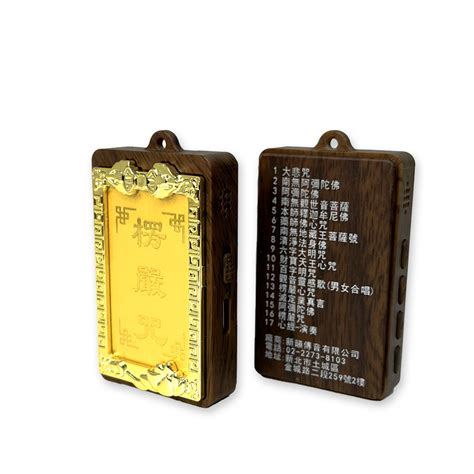 楞嚴咒
1 大悲咒
2 南無阿彌陀佛
3 阿彌陀佛
4 南無觀世音菩薩
5 本師釋迦牟尼佛
6 藥師佛心咒
7 南無地藏王菩薩號
8 清淨法身佛
9 六字大明咒
10 財寶天王心咒
11 百字明咒
12 觀音靈感歌(男女合唱)
13 楞嚴心咒
14 滅定業真言
15
16 楞嚴咒
17 心經-演奏
廠商:新韻傳音有限公司
電話:02-2273-8103
地址:新北市土城區
金城路二段259號2樓